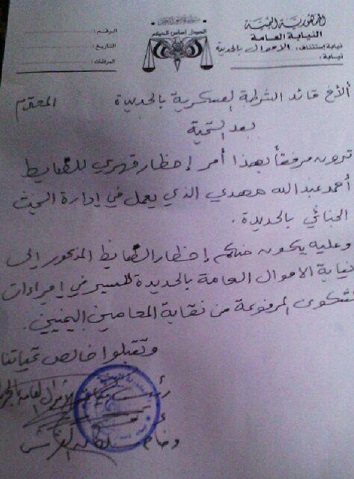 الجمهورية اليمنية
النيابة العامة
نيابة إستئناف: الأموال بالحديدة
نيابة:
العدل أساس الحكم
الرقم:
التاريخ:
المرفقات:
الأخ قائد الشرطة العسكرية بالحديدة المحترم
بعد التحية
ترون مرفقاً بهذا أمر إحظار قهري للضابط
أحمد عبدالله مهدي الذي يعمل في إدارة البحث
الجنائي بالحديدة.
وعليه يكون منكم إحظار الضابط المذكور إلى
نيابة الاموال العامة بالحديدة للسير في إجراءات
الشكوى المرفوعة من نقابة المحامين اليمنيين.
وتقبلوا خالص تحياتنا